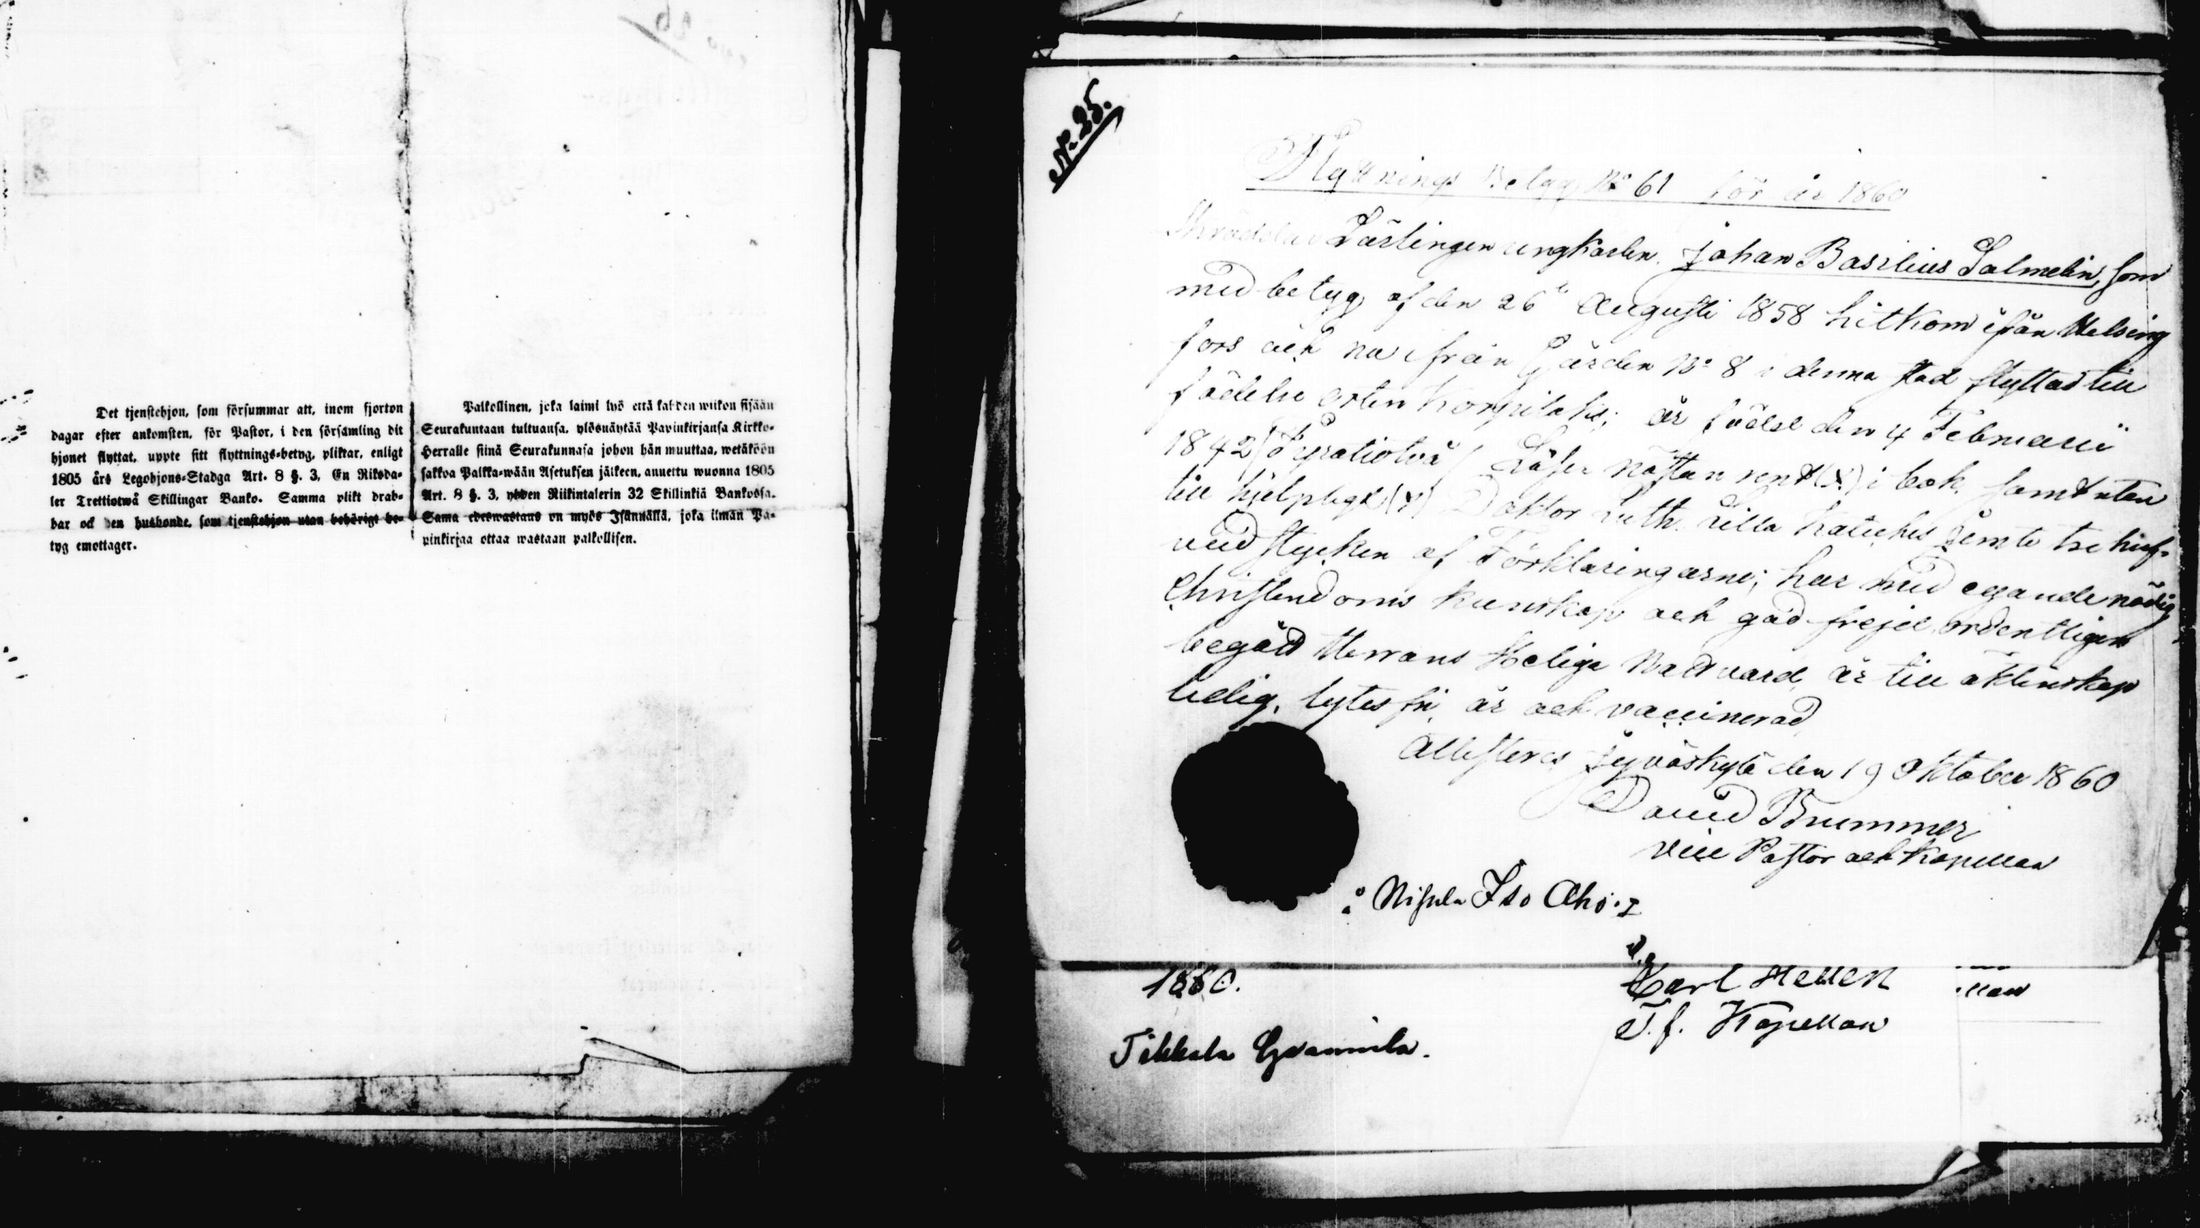 Det tjenstehjon, som försummar att, inom fjorton
dagar efter ankomsten, för Pastor, i den församling dit
hjonet flyttat, uppte sitt flyttnings-betyg, pliktar, enligt
1805 års Legohjons-Stadga Art. 8 §. 3, En Riksda-
ler Trettiotwå Skillingar Banko. Samma plikt drab-
bar ock den husbonde, som tjenstehjon utan behörigt be-
tyg emottager.
Palkollinen, joka laimi lyö että kahden wiikon sisään
Seurakuntaan tultuansa, ylösnäyttää Papinkirjansa Kirkko-
Herralle siinä Seurakunnasa johon hän muuttaa, wetäköön
sakkoa Palkka-wään Asetuksen jälkeen, annettu wuonna 1805
Art. 8 §. 3, yhden Riikintalerin 32 Skillinkiä Bankossa.
Sama edeswastaus on myös Isännällä, joka ilman Pa-
pinkirjaa ottaa wastaan palkollisen.
No 25.
Flyttnings Betyg No 61 för år 1860
Lärlingen ungkarlen Johan Basilius Salmelin, som
med betyg af den 26te Augusti 1858 hitkom ifrån Helsing
fors och nu ifrån Gården No 8 i denna stad flyttad till
födelse orten Korpilaks; är född den 4 Februarii
1842 (Fyratiotvå) Läser nästan rent (x) i bok, samt utan
till hjelpligt (x) Doktor Luth. Lilla Kateches jemte tre huf-
vud stycken af Förklaringarne; har med egande nödig
Christendoms kunskap och god frejd ordentligen
begått Herrans Heliga Nattvard, är till äktenskap
ledig, lytes fri är och vaccinerad,
Attesteras Jyväskylä den 19 Oktober 1860
David Brummer
vice Pastor och Kapellan
Nisula Iso Aho
1860.
Carl Hellen
T. f. Kapellan
llan
Tikkala